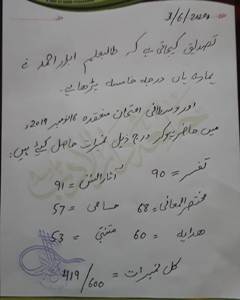 3/6/2020
تصدیق کیجاتی ہے کہ طالبعلم انور احمد نے
ہمارے ہاں درجہ خامسہ پڑھا ہے۔
اور وسطانی امتحان منعقدہ 16 نومبر 2019ء
میں حاضر ہوکر درج ذیل نمبرات حاصل کیے ہیں:
تفسیر = 90 آثار السنن = 91
مختصر المعانی = 68 حسامی = 57
ھدایہ = 60 متنبّی = 53
کل نمبرات = 419/600